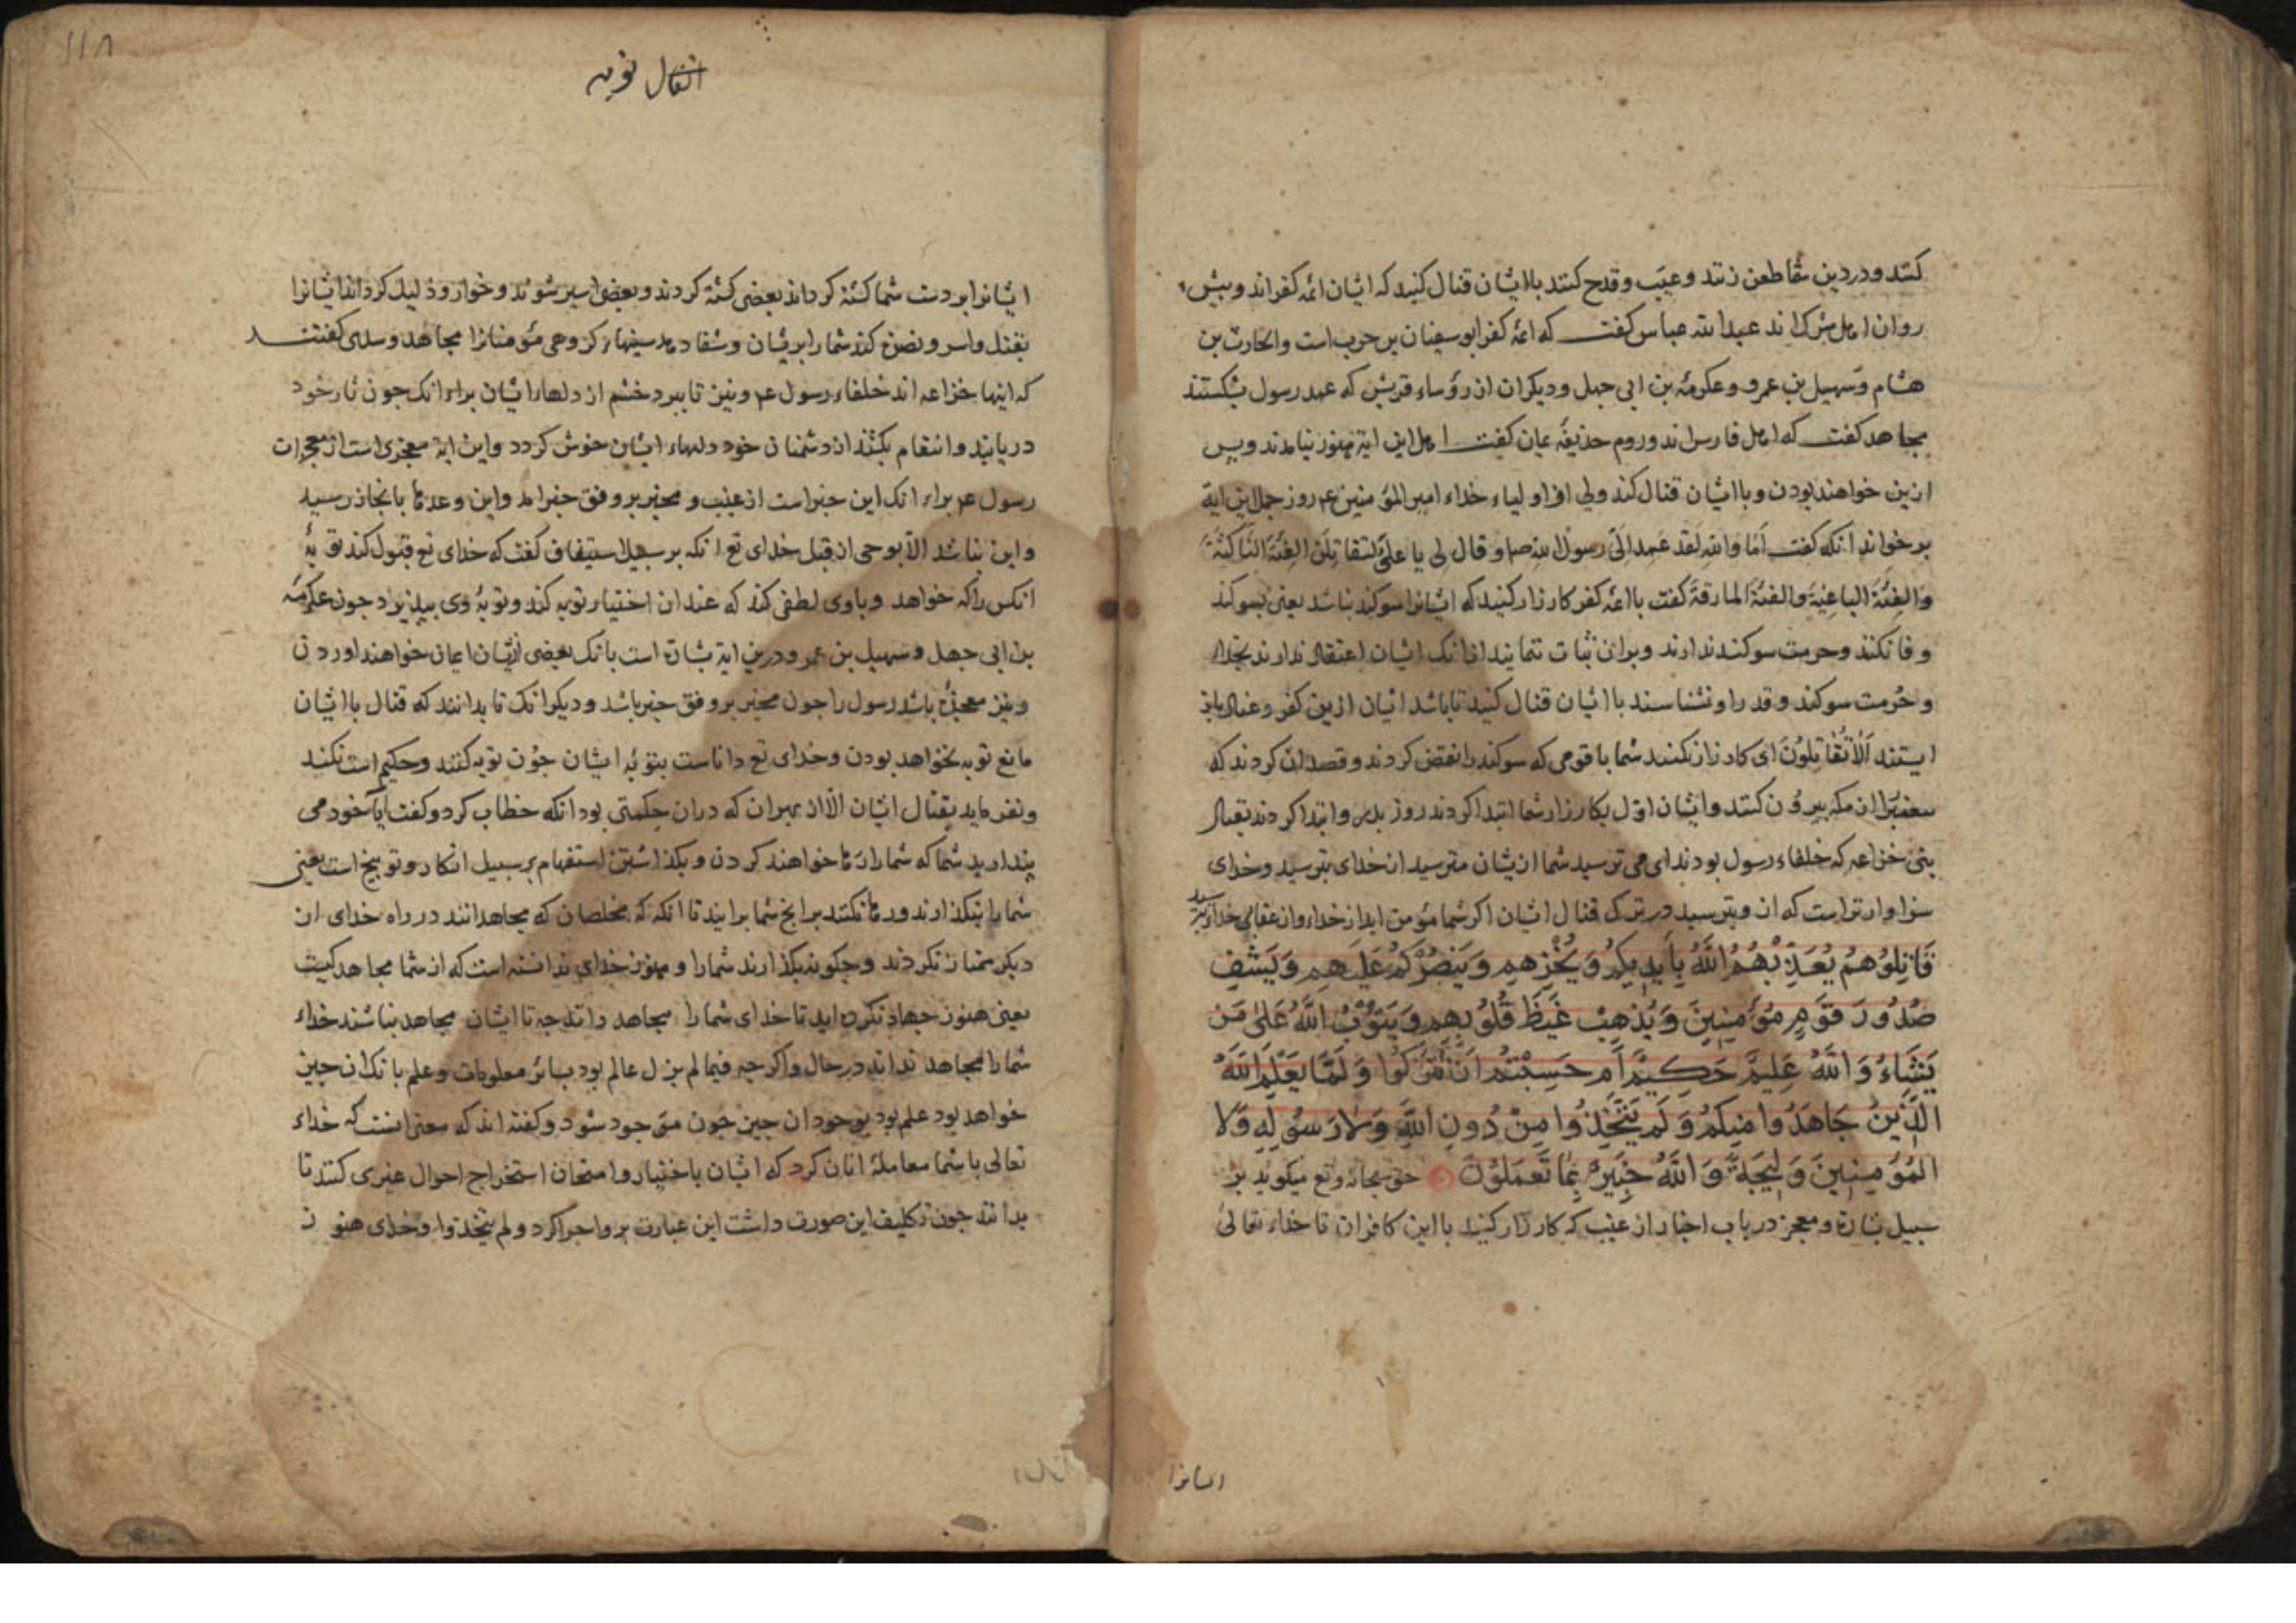 کنند و در دین شما طعن زنند و عیب و قدح کنند باایشان قتال کنید که ایشان ائمه کفراند و پیش
روان اهل شرک اند عبدالله عباس کفت که ائمه کفر ابوسفیان بن حرب است والحارث بن
هشام وسهیل بن عمرو وعکرمة بن ابی جهل ودیکران از رؤساء قریش که عهد رسول بشکستند
مجاهد کفت که اهل فارس اند وروم حذیفه یمان کفت اهل این ایة هنوز نیامدند وپس
ازین خواهند بودن و باایشان قتال کند ولی از اولیاء خداء امیرالمؤمنین ع روز جمل این ایة
برخواند انکه کفت اما والله لقد عهد الی رسول الله ص و قال لی یا علی لتقاتلن الفئة الناکثة
والفئة الباغیة والفئة المارقة کفت باائمه کفر کارزار کنید که ایشانرا سوکند نباشد یعنی بسوکند
وفا نکنند وحرمت سوکند ندارند وبران ثبات ننمایند ازانک ایشان اعتقاد ندارند بخداء
وحرمت سوکند وقدر او نشناسند باایشان قتال کنید تا باشد ایشان ازین کفر وعناد باز
ایستند اَلاَ تُقَاتِلُونَ ای کارزار نکنید شما با قومی که سوکند را نقض کردند وقصد ان کردند که
پیغمبر را از مکه بیرون کنند وایشان اول بکارزار شما ابتدا کردند روز بدر وابتدا کردند بقتال
بنی خزاعه که خلفاء رسول بودند ای می ترسید شما ازیشان مترسید از خدای بترسید وخدای
سزاوارتراست که ازو بترسید در ترک قتال ایشان اکر شما مؤمن اید از خداء واز عقاب خدا بترسید
قَاتِلُوهُمْ يُعَذِّبْهُمُ اللَّهُ بِأَيْدِيكُمْ وَيُخْزِهِمْ وَيَنْصُرْكُمْ عَلَيْهِمْ وَيَشْفِ
صُدُورَ قَوْمٍ مُؤْمِنِينَ وَيُذْهِبْ غَيْظَ قُلُوبِهِمْ وَيَتُوبُ اللَّهُ عَلَىٰ مَنْ
يَشَاءُ وَاللَّهُ عَلِيمٌ حَكِيمٌ أَمْ حَسِبْتُمْ أَنْ تُتْرَكُوا وَلَمَّا يَعْلَمِ اللَّهُ
الَّذِينَ جَاهَدُوا مِنْكُمْ وَلَمْ يَتَّخِذُوا مِنْ دُونِ اللَّهِ وَلَا رَسُولِهِ وَلَا
الْمُؤْمِنِينَ وَلِيجَةً وَاللَّهُ خَبِيرٌ بِمَا تَعْمَلُونَ حق سبحانه وتع میکوید بر
سبیل بشارة ومعجز در باب اخبار از غیب که کارزار کنید بااین کافران تا خداء تعالی
ایشانرا
۱۱۸
انفال توبه
ایشانرا بر دست شما کشته کرداند بعضی کشته کردند وبعضی اسیر شوند و خوار وذلیل کرداند ایشانرا
بقتل واسر ونصرة کند شما را بریشان وشفا دهد سینهاء کروهی مؤمنانرا مجاهد وسدی کفتند
که اینها خزاعه اند خلفاء رسول ع ونیز تا ببرد خشم از دلهاء ایشان براء انک جون ثار خود
دریابند وانتقام بکشند از دشمنان خود دلهاء ایشان خوش کردد واین ایة معجزی است از معجزات
رسول ع براء انک این خبر است از غیب و مخبر بر وفق خبر امد واین وعدها بانجاز رسید
واین نباشد الا بوحی از قبل خدای تع انکه بر سبیل استیناف کفت که خدای تع قبول کند توبهٔ
انکس را که خواهد وباوی لطفی کند که عند ان اختیار توبه کند وتوبهٔ وی بپذیرد جون عکرمه
بن ابی جهل وسهیل بن عمرو ودرین ایة بشارة است بانک بعضی ازیشان ایمان خواهند اوردن
ونیز معجزهٔ باشد رسول را جون مخبر بر وفق خبر باشد ودیکر انک تا بدانند که قتال باایشان
مانع توبه نخواهد بودن وخدای تع داناست بتوبهٔ ایشان جون توبه کنند وحکیم است نکند
ونفرماید بقتال ایشان الا از بهر ان که دران حکمتی بود انکه خطاب کرد وکفت ایا خود می
پندارید شما که شما را رها خواهند کردن وبکذاشتن استفهام بر سبیل انکار وتوبیخ است یعنی
شما را بنکذارند ورها نکنند برانج شما برایند تا انکه که مخلصان که مجاهدانند در راه خدای از
دیکر ممتاز نکردند وجکونه بکذارند شما را و هنوز خدای ندانسته است که از شما مجاهد کیست
یعنی هنوز جهاد نکرده اید تا خدای شما را مجاهد داند جه تا ایشان مجاهد نباشند خداء
شما را مجاهد نداند در حال واکرجه فیما لم یزل عالم بود بسائر معلومات وعلم بانک ان جیز
خواهد بود علم بود بوجود ان جیز جون موجود شود وکفته اند که معنی انست که خداء
تعالی با شما معاملهٔ انان کرد که ایشان باختبار وامتحان استخراج احوال غیری کنند تا
بدانند جون تکلیف این صورت داشت این عبارت برو اجرا کرد ولم یتخذوا وخدای هنوز